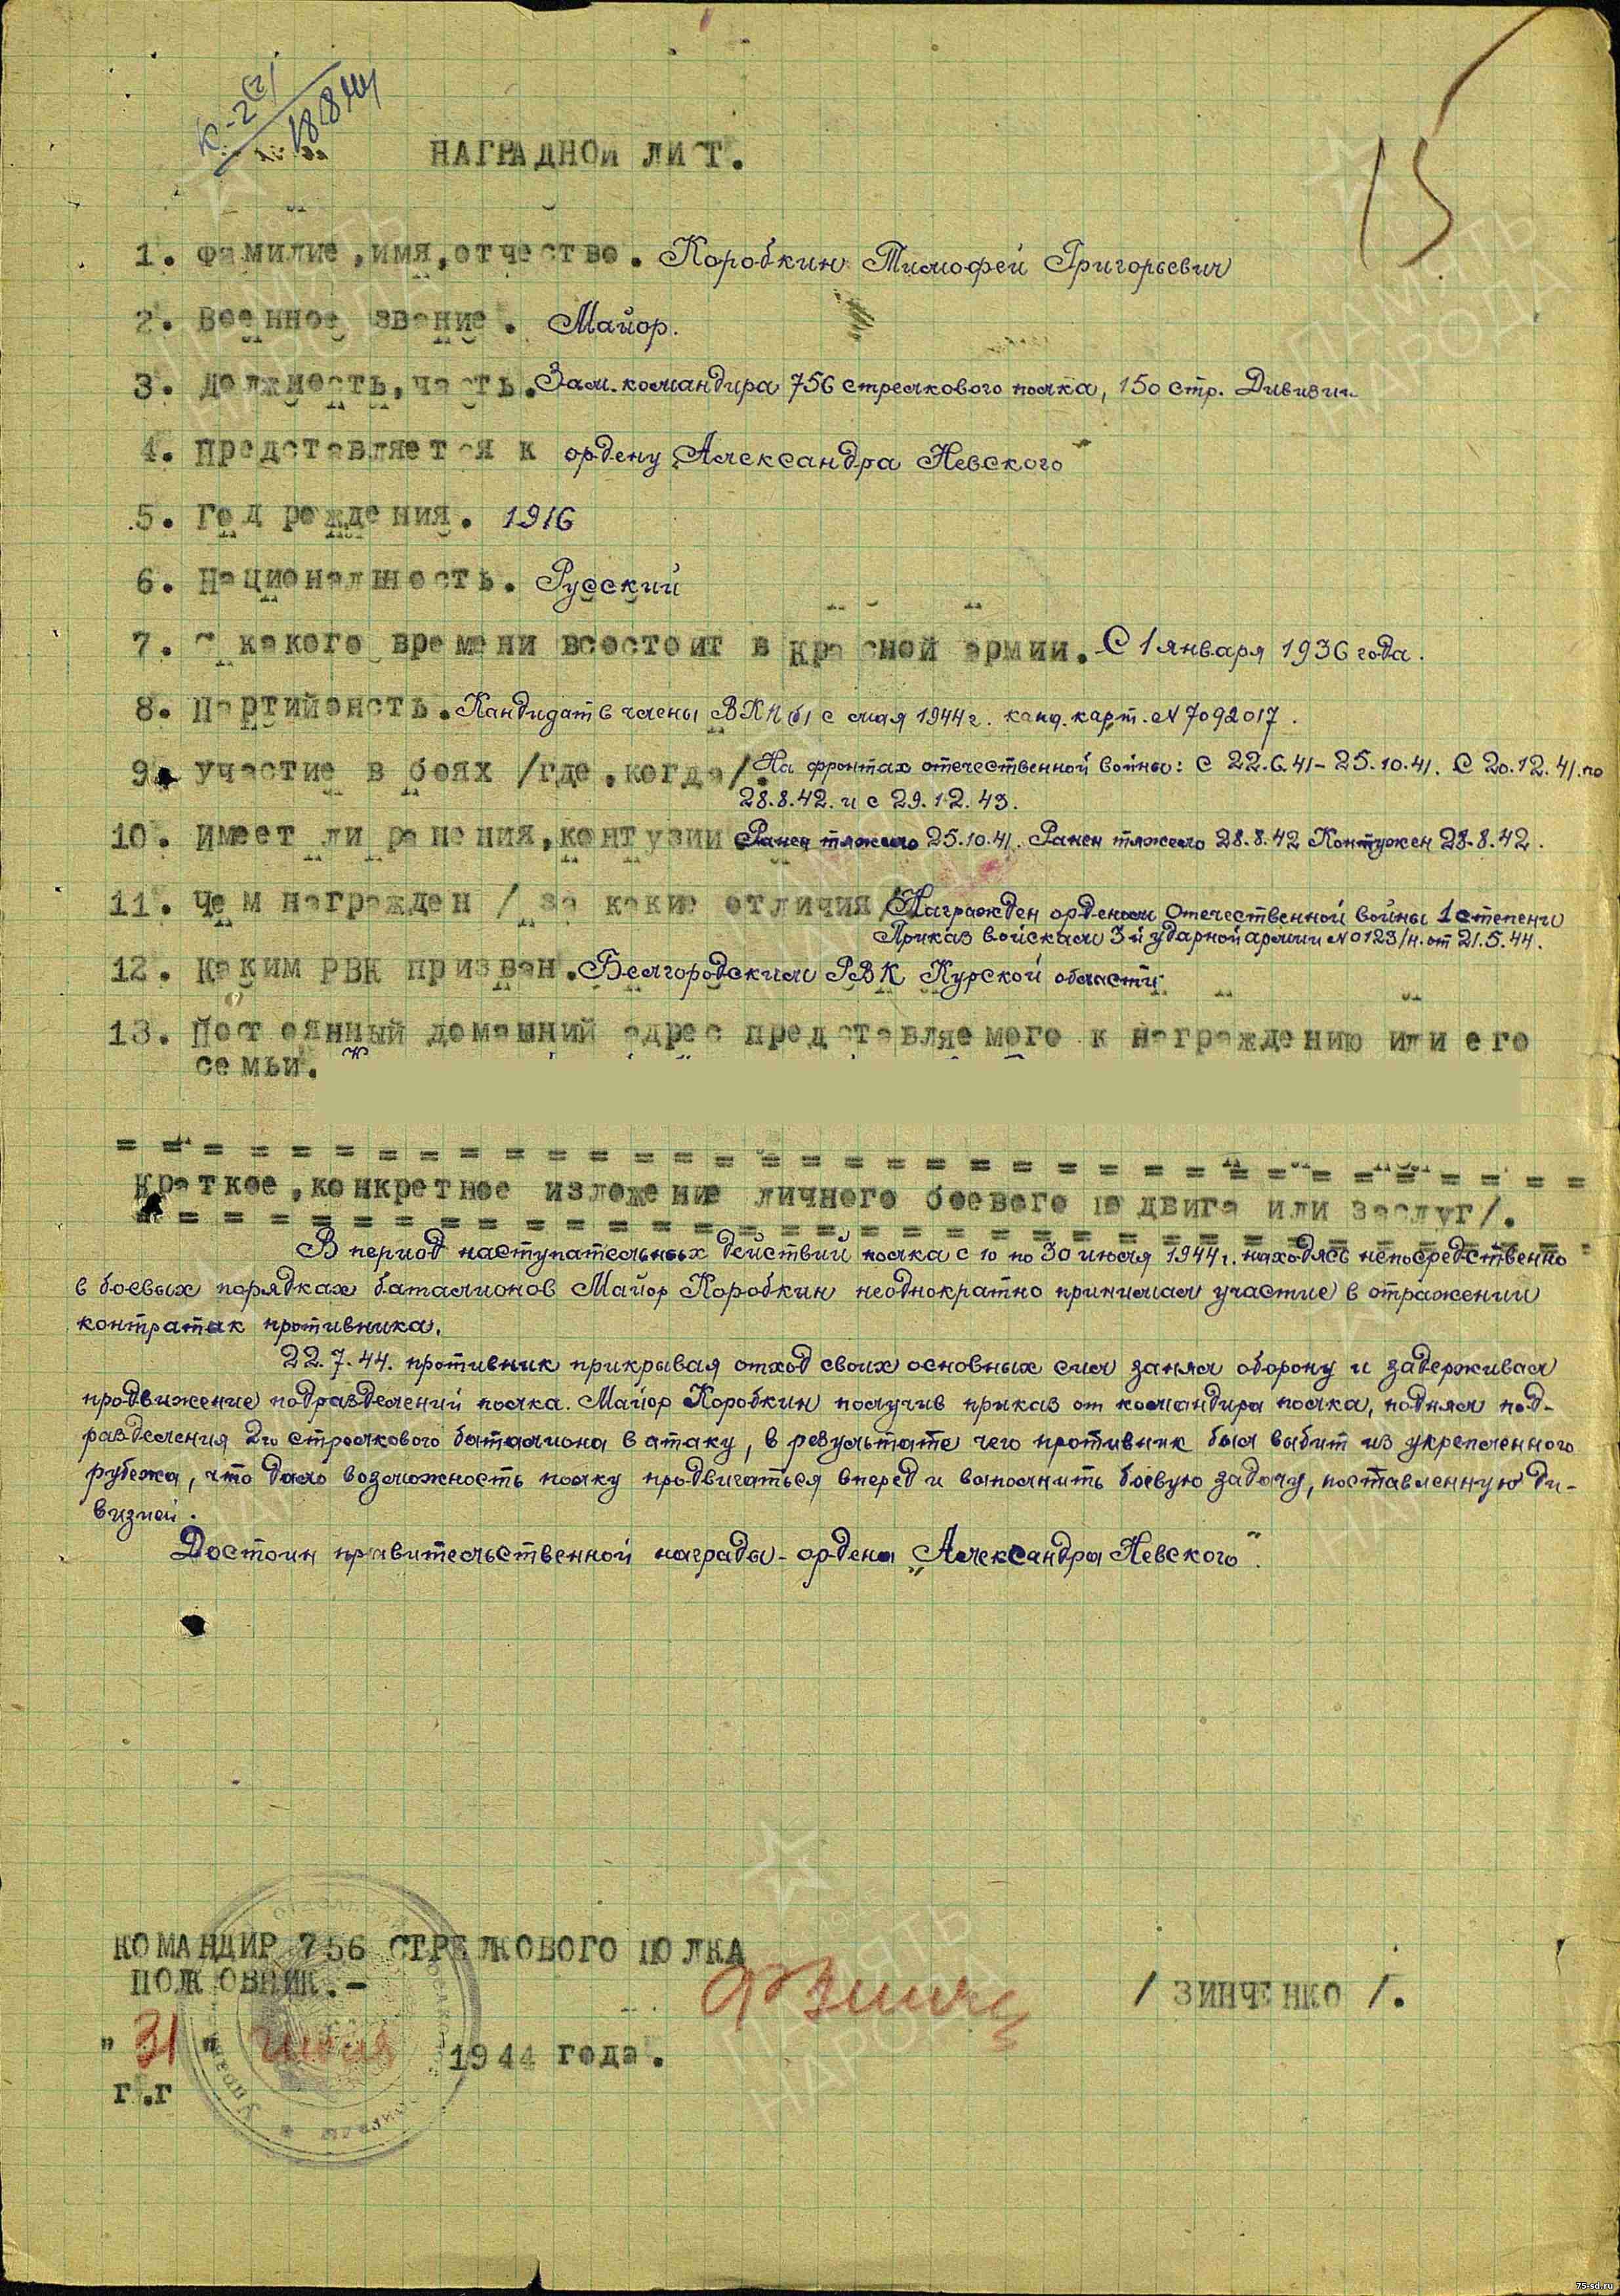 К-2(2)
18.8.44
15
НАГРАДНОЙ ЛИСТ.
1. Фамилие, имя, отчество. Коробкин Тимофей Григорьевич
2. Военное звание. Майор.
3. Должность, часть. Зам. командира 756 стрелкового полка, 150 стр. Дивизии
4. Представляется к ордену „Александра Невского"
5. Год рождения. 1916
6. Национальность. Русский
7. С какого времени всостоит в Красной армии. С 1 января 1936 года.
8. Партийность. Кандидат в члены ВКП(б) с мая 1944 г. канд. карт. № 7092017.
9. Участие в боях /где, когда/. На фронтах отечественной войны: С 22.6.41 - 25.10.41. С 20.12.41. по
28.8.42. и с 29.12.43.
10. Имеет ли ранения, контузии Ранен тяжело 25.10.41. Ранен тяжело 28.8.42 Контужен 28.8.42.
11. Чем награжден /за какие отличия/ Награжден орденом Отечественной войны 1 степени
Приказ войскам 3й ударной армии № 0123/н. от 21.5.44.
12. Каким РВК призван. Белгородским РВК Курской области
13. Постоянный домашний адрес представляемого к награждению или его
семьи.
Краткое, конкретное изложение личного боевого подвига или заслуг/.
В период наступательных действий полка с 10 по 30 июля 1944 г. находясь непосредственно
в боевых порядках баталионов Майор Коробкин неоднократно принимал участие в отражении
контратак противника.
22.7.44. противник прикрывая отход своих основных сил занял оборону и задерживал
продвижение подразделений полка. Майор Коробкин получив приказ от командира полка, поднял под-
разделения 2го стрелкового баталиона в атаку, в результате чего противник был выбит из укрепленного
рубежа, что дало возможность полку продвигаться вперед и выполнить боевую задачу, поставленную ди-
визией.
Достоин правительственной награды - ордена „Александра Невского".
КОМАНДИР 756 СТРЕЛКОВОГО ПОЛКА
ПОЛКОВНИК.-
/ ЗИНЧЕНКО /.
" 31 " июля 1944 года.
г.г
ПАМЯТЬ НАРОДА
75-sd.ru